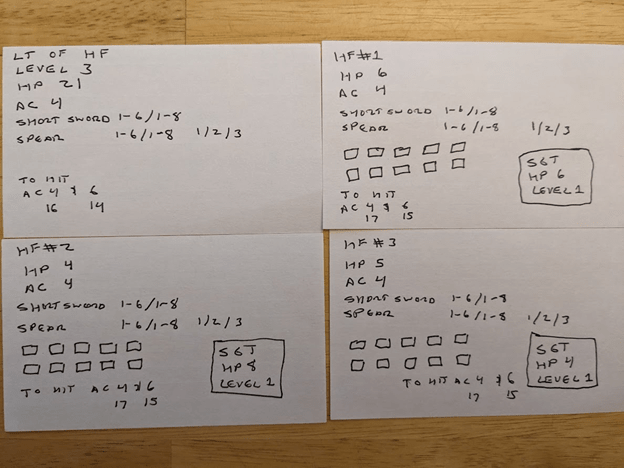 LT OF HF
LEVEL 3
HP 21
AC 4
SHORT SWORD 1-6/1-8
SPEAR 1-6/1-8 1/2/3
TO HIT
AC 4 & 6
16 14
HF#1
HP 6
AC 4
SHORT SWORD 1-6/1-8
SPEAR 1-6/1-8 1/2/3
SGT
HP 6
LEVEL 1
TO HIT
AC 4 & 6
17 15
HF#2
HP 4
AC 4
SHORT SWORD 1-6/1-8
SPEAR 1-6/1-8 1/2/3
SGT
HP 8
LEVEL 1
TO HIT AC 4 & 6
17 15
HF#3
HP 5
AC 4
SHORT SWORD 1-6/1-8
SPEAR 1-6/1-8 1/2/3
SGT
HP 4
LEVEL 1
TO HIT AC 4 & 6
17 15